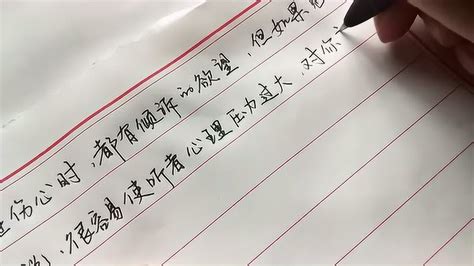 伤心时，都有倾诉的欲望，但如果
，很容易使听者心理压力过大，对你